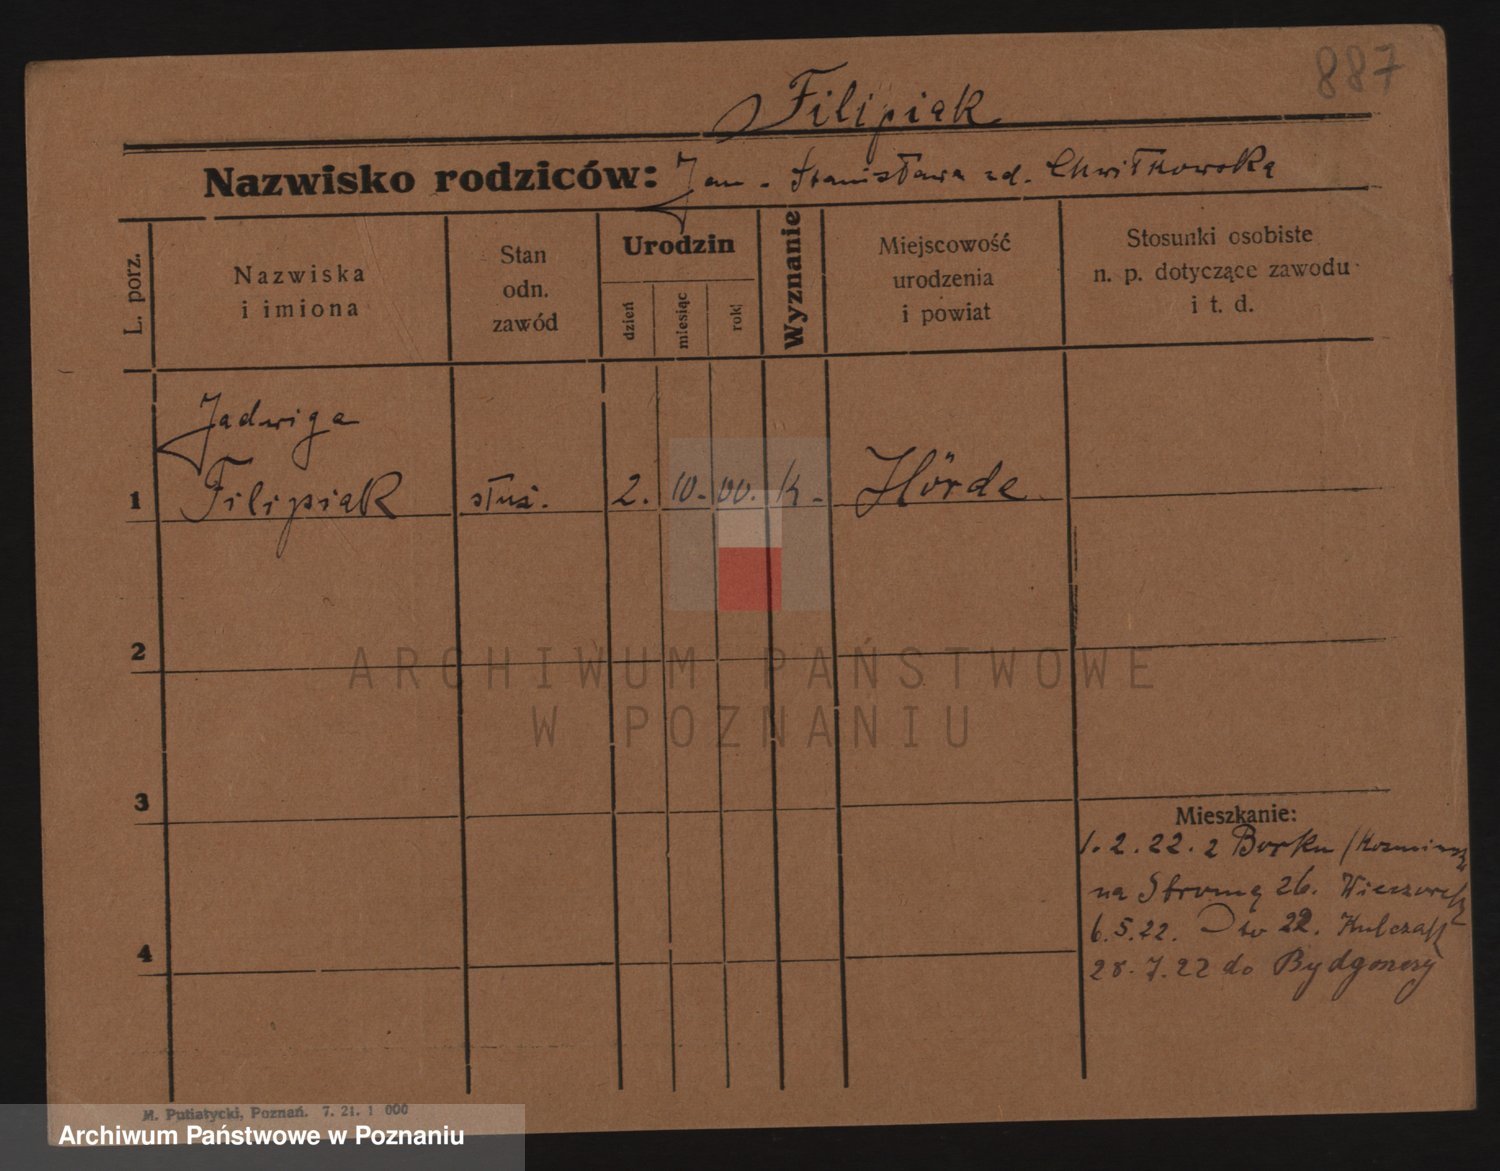 887
Filipiak
Nazwisko rodziców: Jan - Stanisława zd. Chwiłkowska
L. porz.
Nazwiska
i imiona
Stan
odn.
zawód
Urodzin
dzień
miesiąc
rok
Wyznanie
Miejscowość
urodzenia
i powiat
Stosunki osobiste
n. p. dotyczące zawodu
i t. d.
Jadwiga
1 Filipiak służ. 2. 10. 00. k. Hörde
2
3
4
Mieszkanie:
1. 2. 22. z Borku
na Stromą 26.
6. 5. 22. 22.
28. 7. 22 do Bydgoszczy
M. Putiatycki, Poznań. 7. 21. 1 000
ARCHIWUM PAŃSTWOWE
W POZNANIU
Archiwum Państwowe w Poznaniu